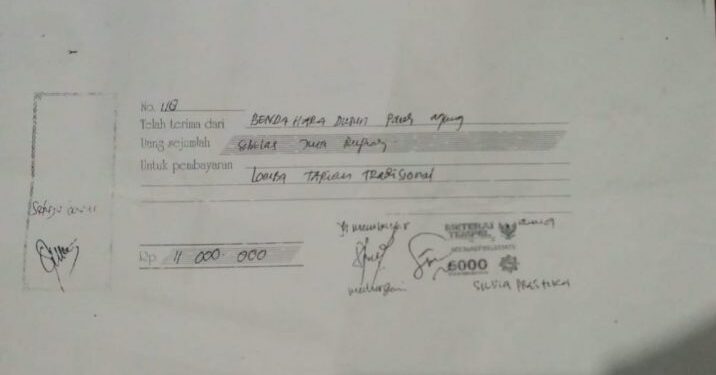 No. 118
Telah terima dari BENDAHARA DUSUN Pasar Agung
Uang sejumlah Sebelas Juta Rupiah
Untuk pembayaran LOMBA TARIAN TRADISIONAL
Rp. 11 000.000
METERAI
TEMPEL
6000
SILVIA PRASTIKA